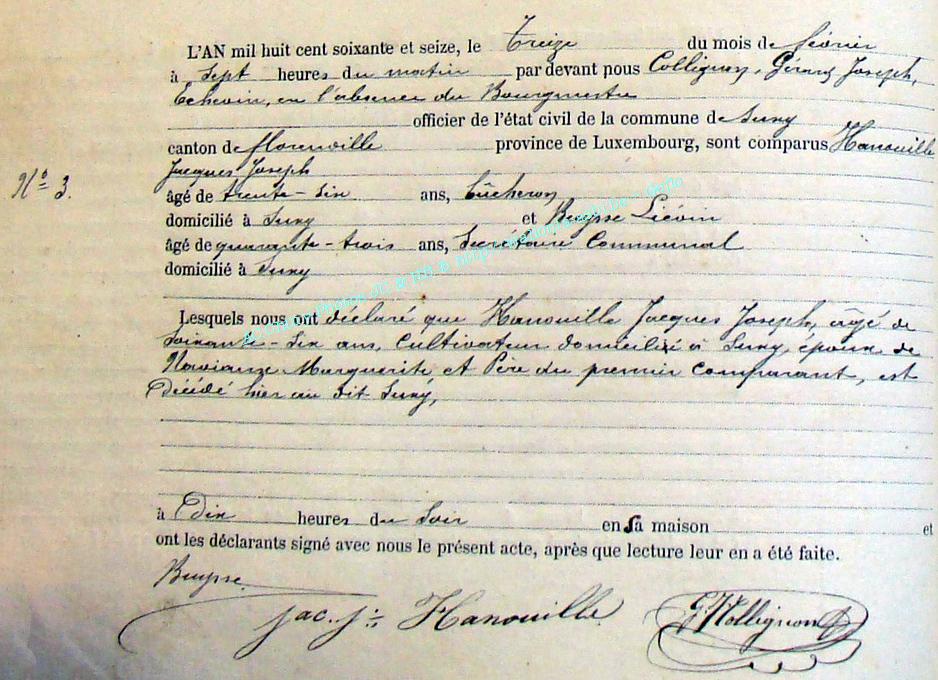 L'AN mil huit cent soixante et seize, le Treize du mois de février
à Sept heures du matin par devant nous Collignon, Gérard Joseph,
Echevin, en l'absence du Bourgmestre
officier de l'état civil de la commune de Suxy
canton de florenville province de Luxembourg, sont comparus Hanouille
Jacques Joseph
N° 3.
âgé de trente-six ans, bûcheron
domicilié à Suxy et Buysse Liévin
âgé de quarante-trois ans, Secrétaire Communal
domicilié à Suxy
Lesquels nous ont déclaré que Hanouille Jacques Joseph, âgé de
Soixante-six ans, Cultivateur domicilié à Suxy, époux de
Marguerite et Père du premier Comparant, est
Décédé hier au dit Suxy,
à Dix heures du Soir en sa maison et
ont les déclarants signé avec nous le présent acte, après que lecture leur en a été faite.
Buysse
Jac. J.: Hanouille
G. J. Collignon